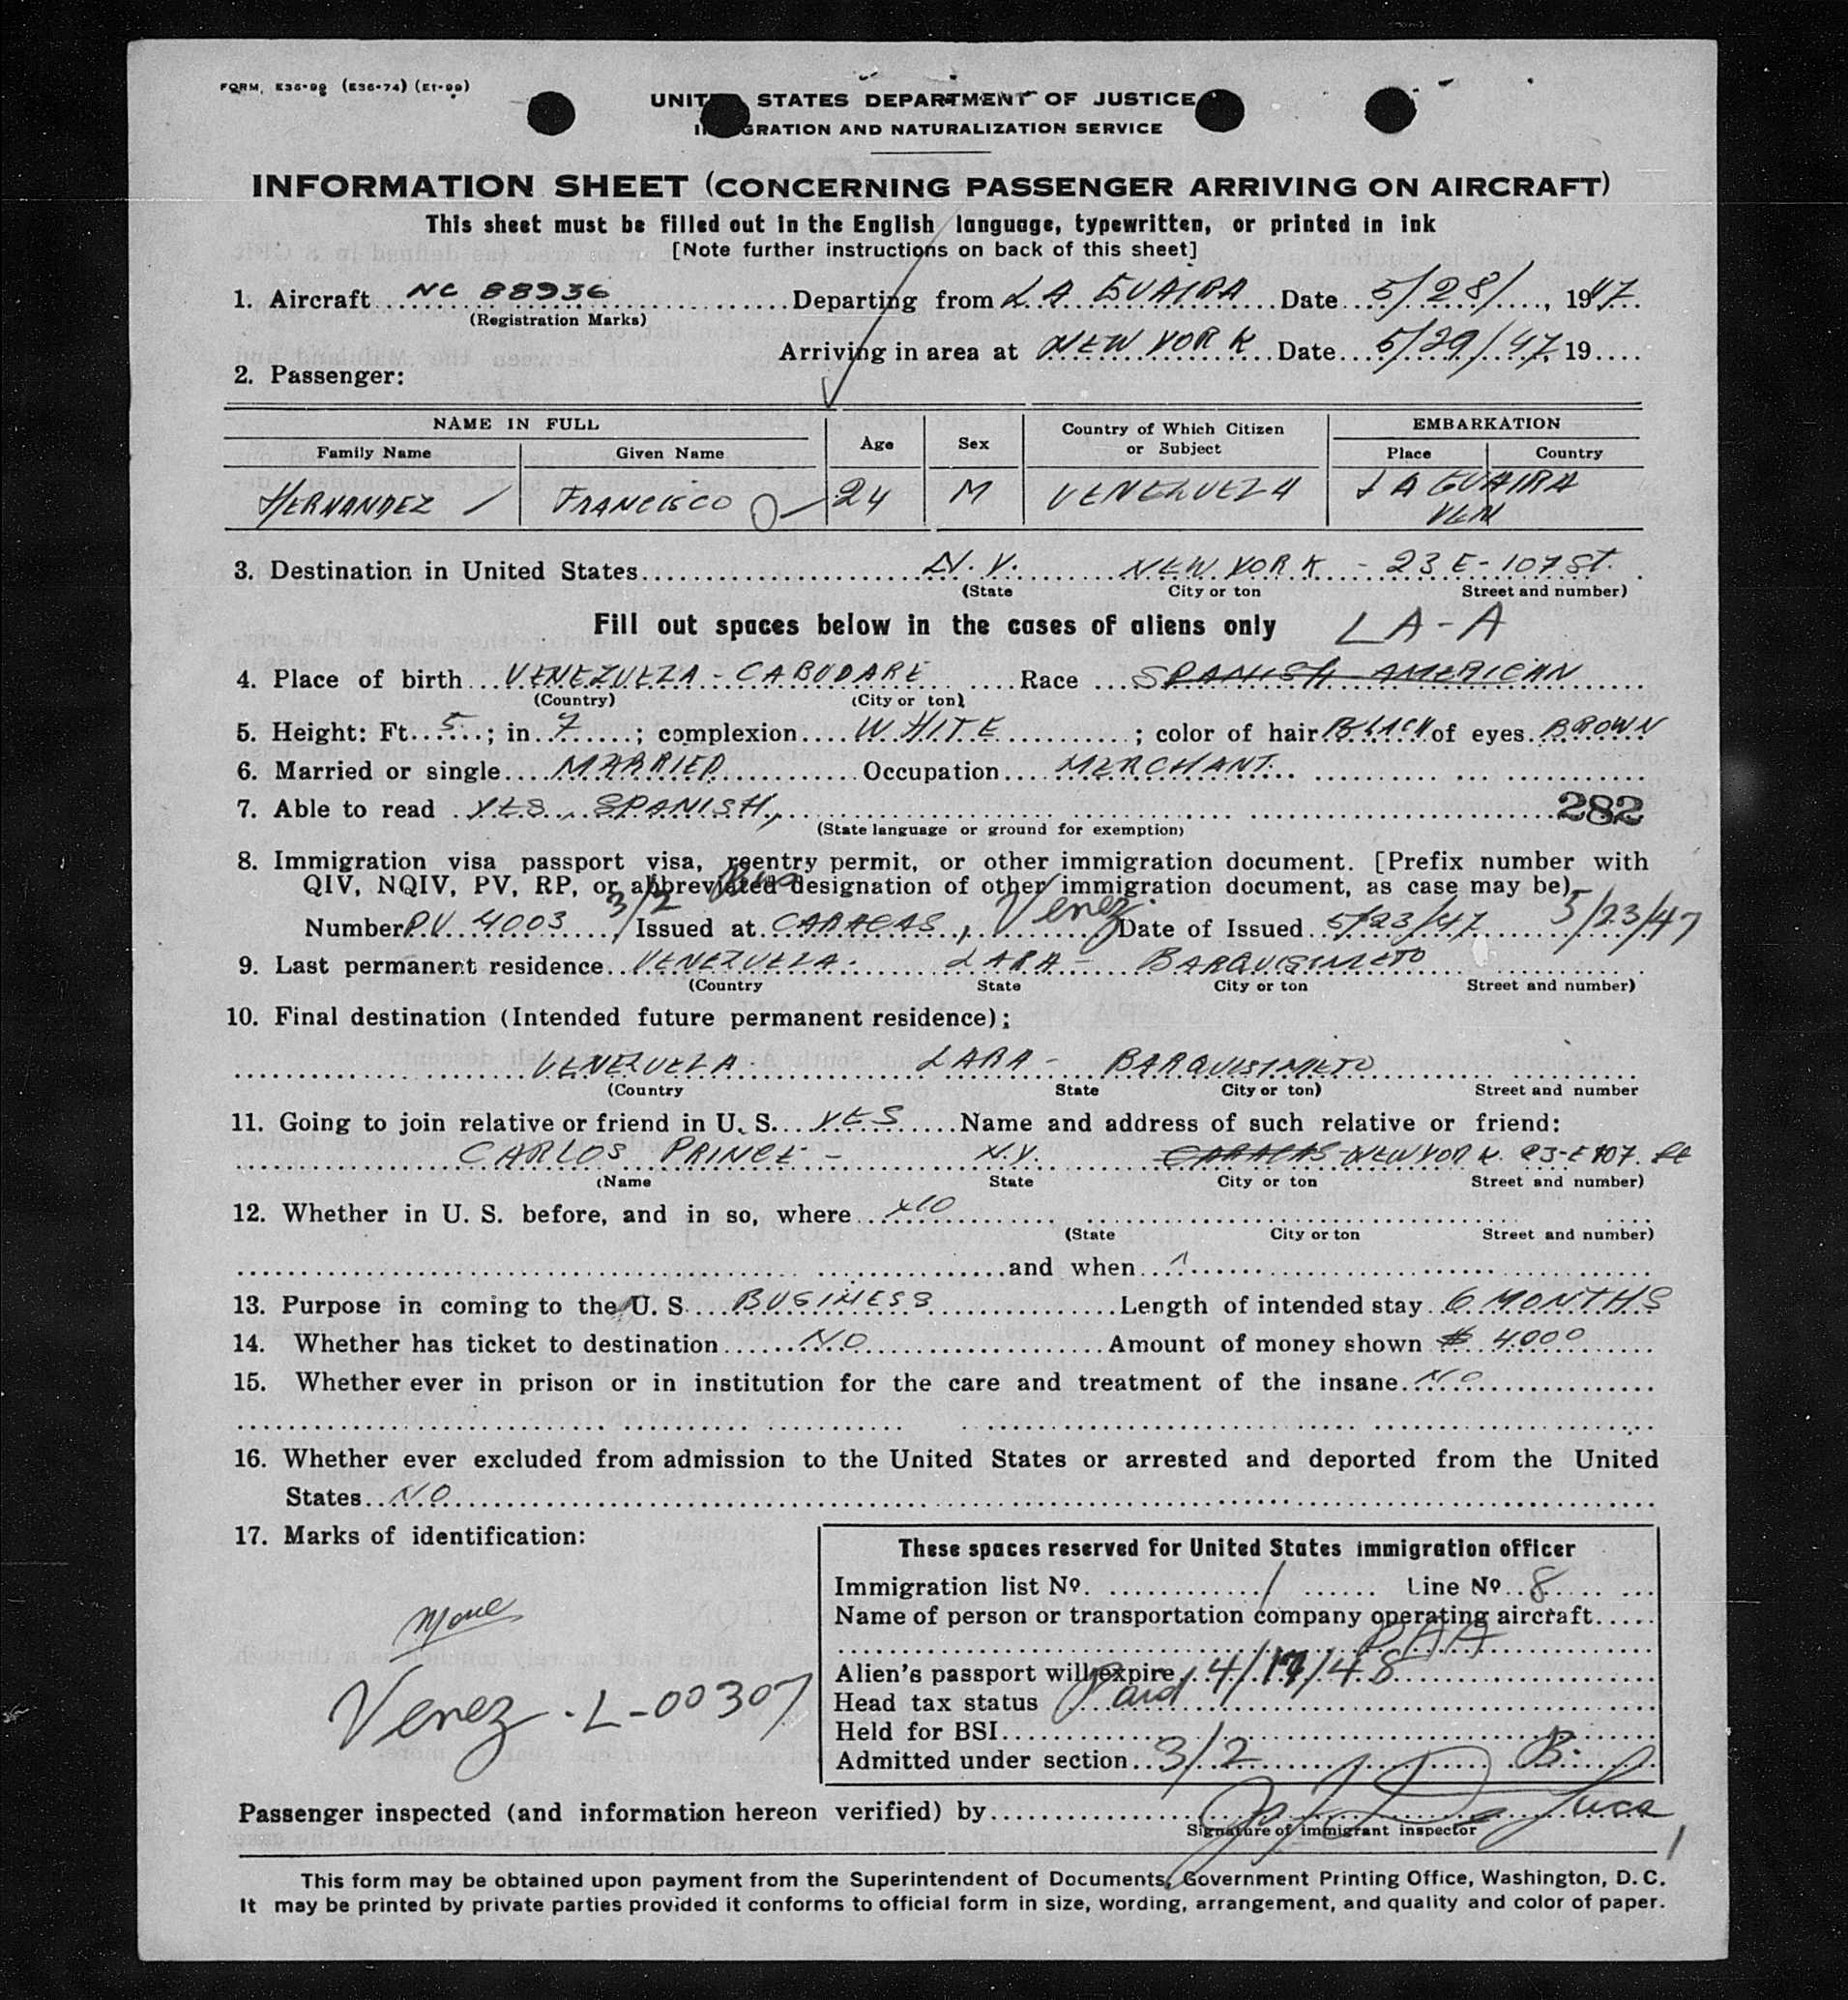 FORM, E36-99 (E36-74) (E1-99)
UNIT STATES DEPARTMENT OF JUSTICE
GRATION AND NATURALIZATION SERVICE
INFORMATION SHEET (CONCERNING PASSENGER ARRIVING ON AIRCRAFT)
This sheet must be filled out in the English language, typewritten, or printed in ink
[Note further instructions on back of this sheet]
1. Aircraft NC 88936 Departing from LA GUAIRA Date 5/28/, 1947
(Registration Marks)
Arriving in area at NEW YORK Date 5/29/47 19....
2. Passenger:
NAME IN FULL Age Sex Country of Which Citizen or Subject EMBARKATION
Family Name Given Name Place Country
HERNANDEZ FRANCISCO 24 M VENEZUELA LA GUAIRA
VEN
3. Destination in United States N.Y. NEW YORK - 23 E-107 St.
(State City or ton Street and number)
Fill out spaces below in the cases of aliens only LA-A
4. Place of birth VENEZUELA - CABUDARE Race SPANISH AMERICAN
(Country) (City or ton)
5. Height: Ft 5; in 7; complexion WHITE; color of hair BLACK of eyes BROWN
6. Married or single MARRIED Occupation MERCHANT
7. Able to read YES, SPANISH, 282
(State language or ground for exemption)
8. Immigration visa passport visa, reentry permit, or other immigration document. [Prefix number with
QIV, NQIV, PV, RP, or abbreviated designation of other immigration document, as case may be)
Number P.V. 4003 3/2 Issued at CARACAS, Venez. Date of Issued 5/23/47 5/23/47
9. Last permanent residence VENEZUELA - LARA - BARQUISIMETO
(Country State City or ton Street and number)
10. Final destination (Intended future permanent residence);
VENEZUELA - LARA - BARQUISIMETO
(Country State City or ton) Street and number
11. Going to join relative or friend in U. S. YES Name and address of such relative or friend:
CARLOS PRINCE - N.Y. CARACAS NEW YORK 23-E 107. St
(Name State City or ton Street and number)
12. Whether in U. S. before, and in so, where NO
(State City or ton Street and number)
and when
13. Purpose in coming to the U. S. BUSINESS Length of intended stay 6 MONTHS
14. Whether has ticket to destination NO Amount of money shown $ 4000
15. Whether ever in prison or in institution for the care and treatment of the insane NO
16. Whether ever excluded from admission to the United States or arrested and deported from the United
States NO
17. Marks of identification:
These spaces reserved for United States immigration officer
Immigration list No. 1 Line No 8
Name of person or transportation company operating aircraft
None
PAA
Alien's passport will expire 4/17/48
Venez.-L-00307
Head tax status Paid
Held for BSI
Admitted under section 3/2 B.
Passenger inspected (and information hereon verified) by
Signature of immigrant inspector
This form may be obtained upon payment from the Superintendent of Documents, Government Printing Office, Washington, D. C.
It may be printed by private parties provided it conforms to official form in size, wording, arrangement, and quality and color of paper.